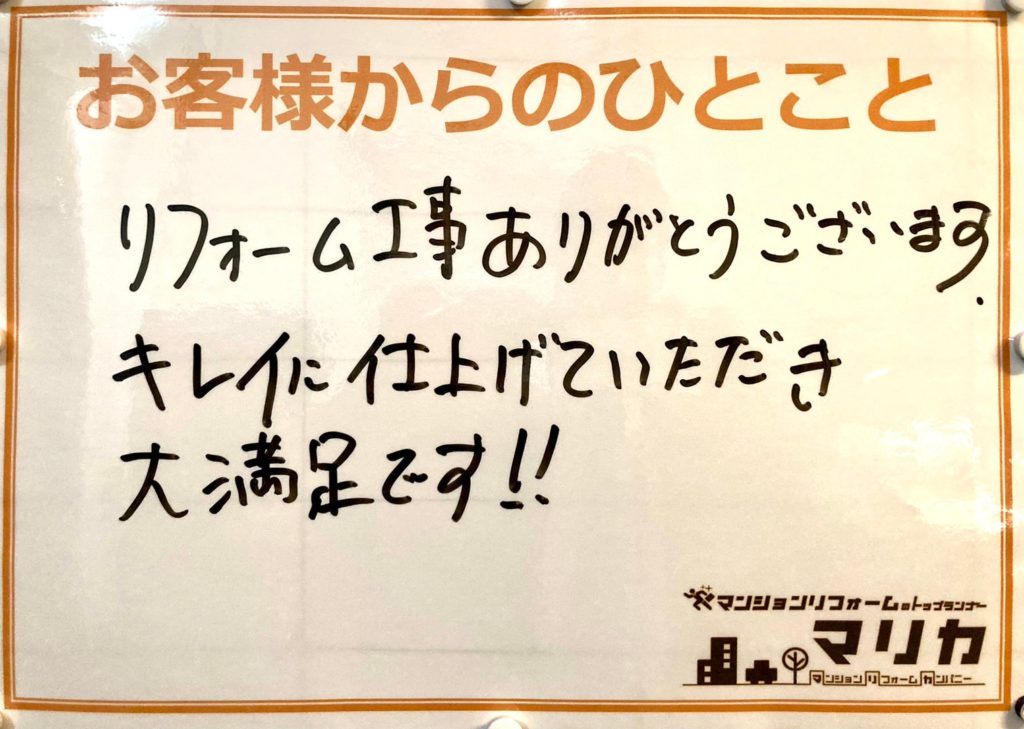 お客様からのひとこと
リフォーム工事ありがとうございます.
キレイに仕上げていただき
大満足です!!
マンションリフォームのトップランナー
マリカ
マンションリフォームカンパニー